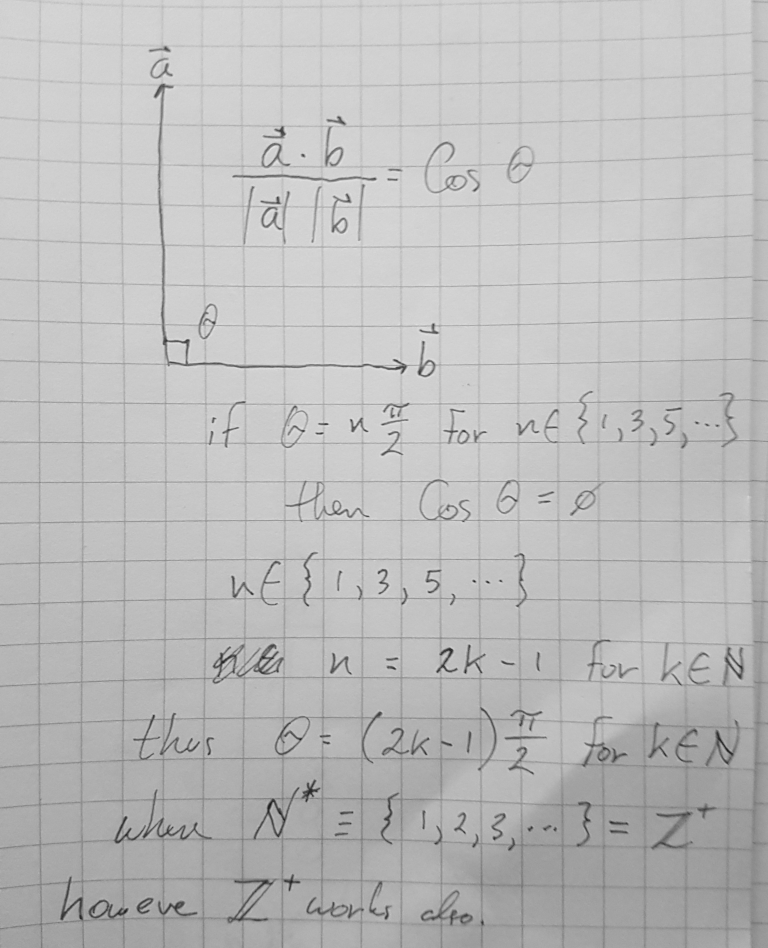 a⃗
a⃗ · b⃗ / |a⃗| |b⃗| = Cos θ
θ
b⃗
if θ = n π/2 for n ∈ {1, 3, 5, ...}
then Cos θ = ø
n ∈ {1, 3, 5, ...}
n = 2k - 1 for k ∈ ℕ
thus θ = (2k-1) π/2 for k ∈ ℕ
where ℕ* ≡ {1, 2, 3, ...} = ℤ⁺
howeve ℤ⁺ works also.